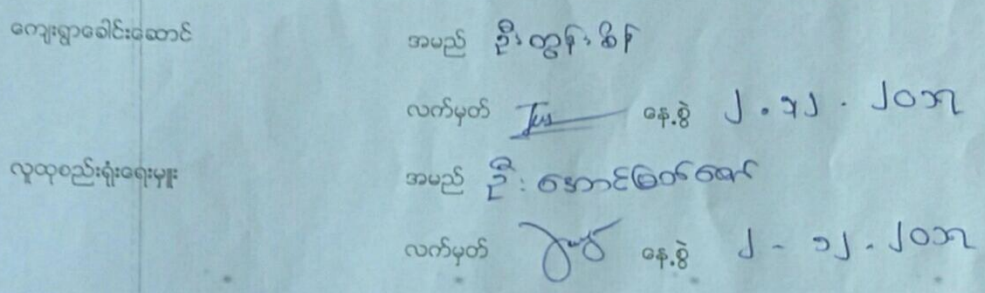 ကျေးရွာခေါင်းဆောင် အမည် ဦးထွန်းစိန်
လက်မှတ် နေ့စွဲ ၂.၁၂.၂၀၁၇
လူထုစည်းရုံးရေးမှူး အမည် ဦးအောင်မြတ်ဇော်
လက်မှတ် နေ့စွဲ ၂-၁၂.၂၀၁၇